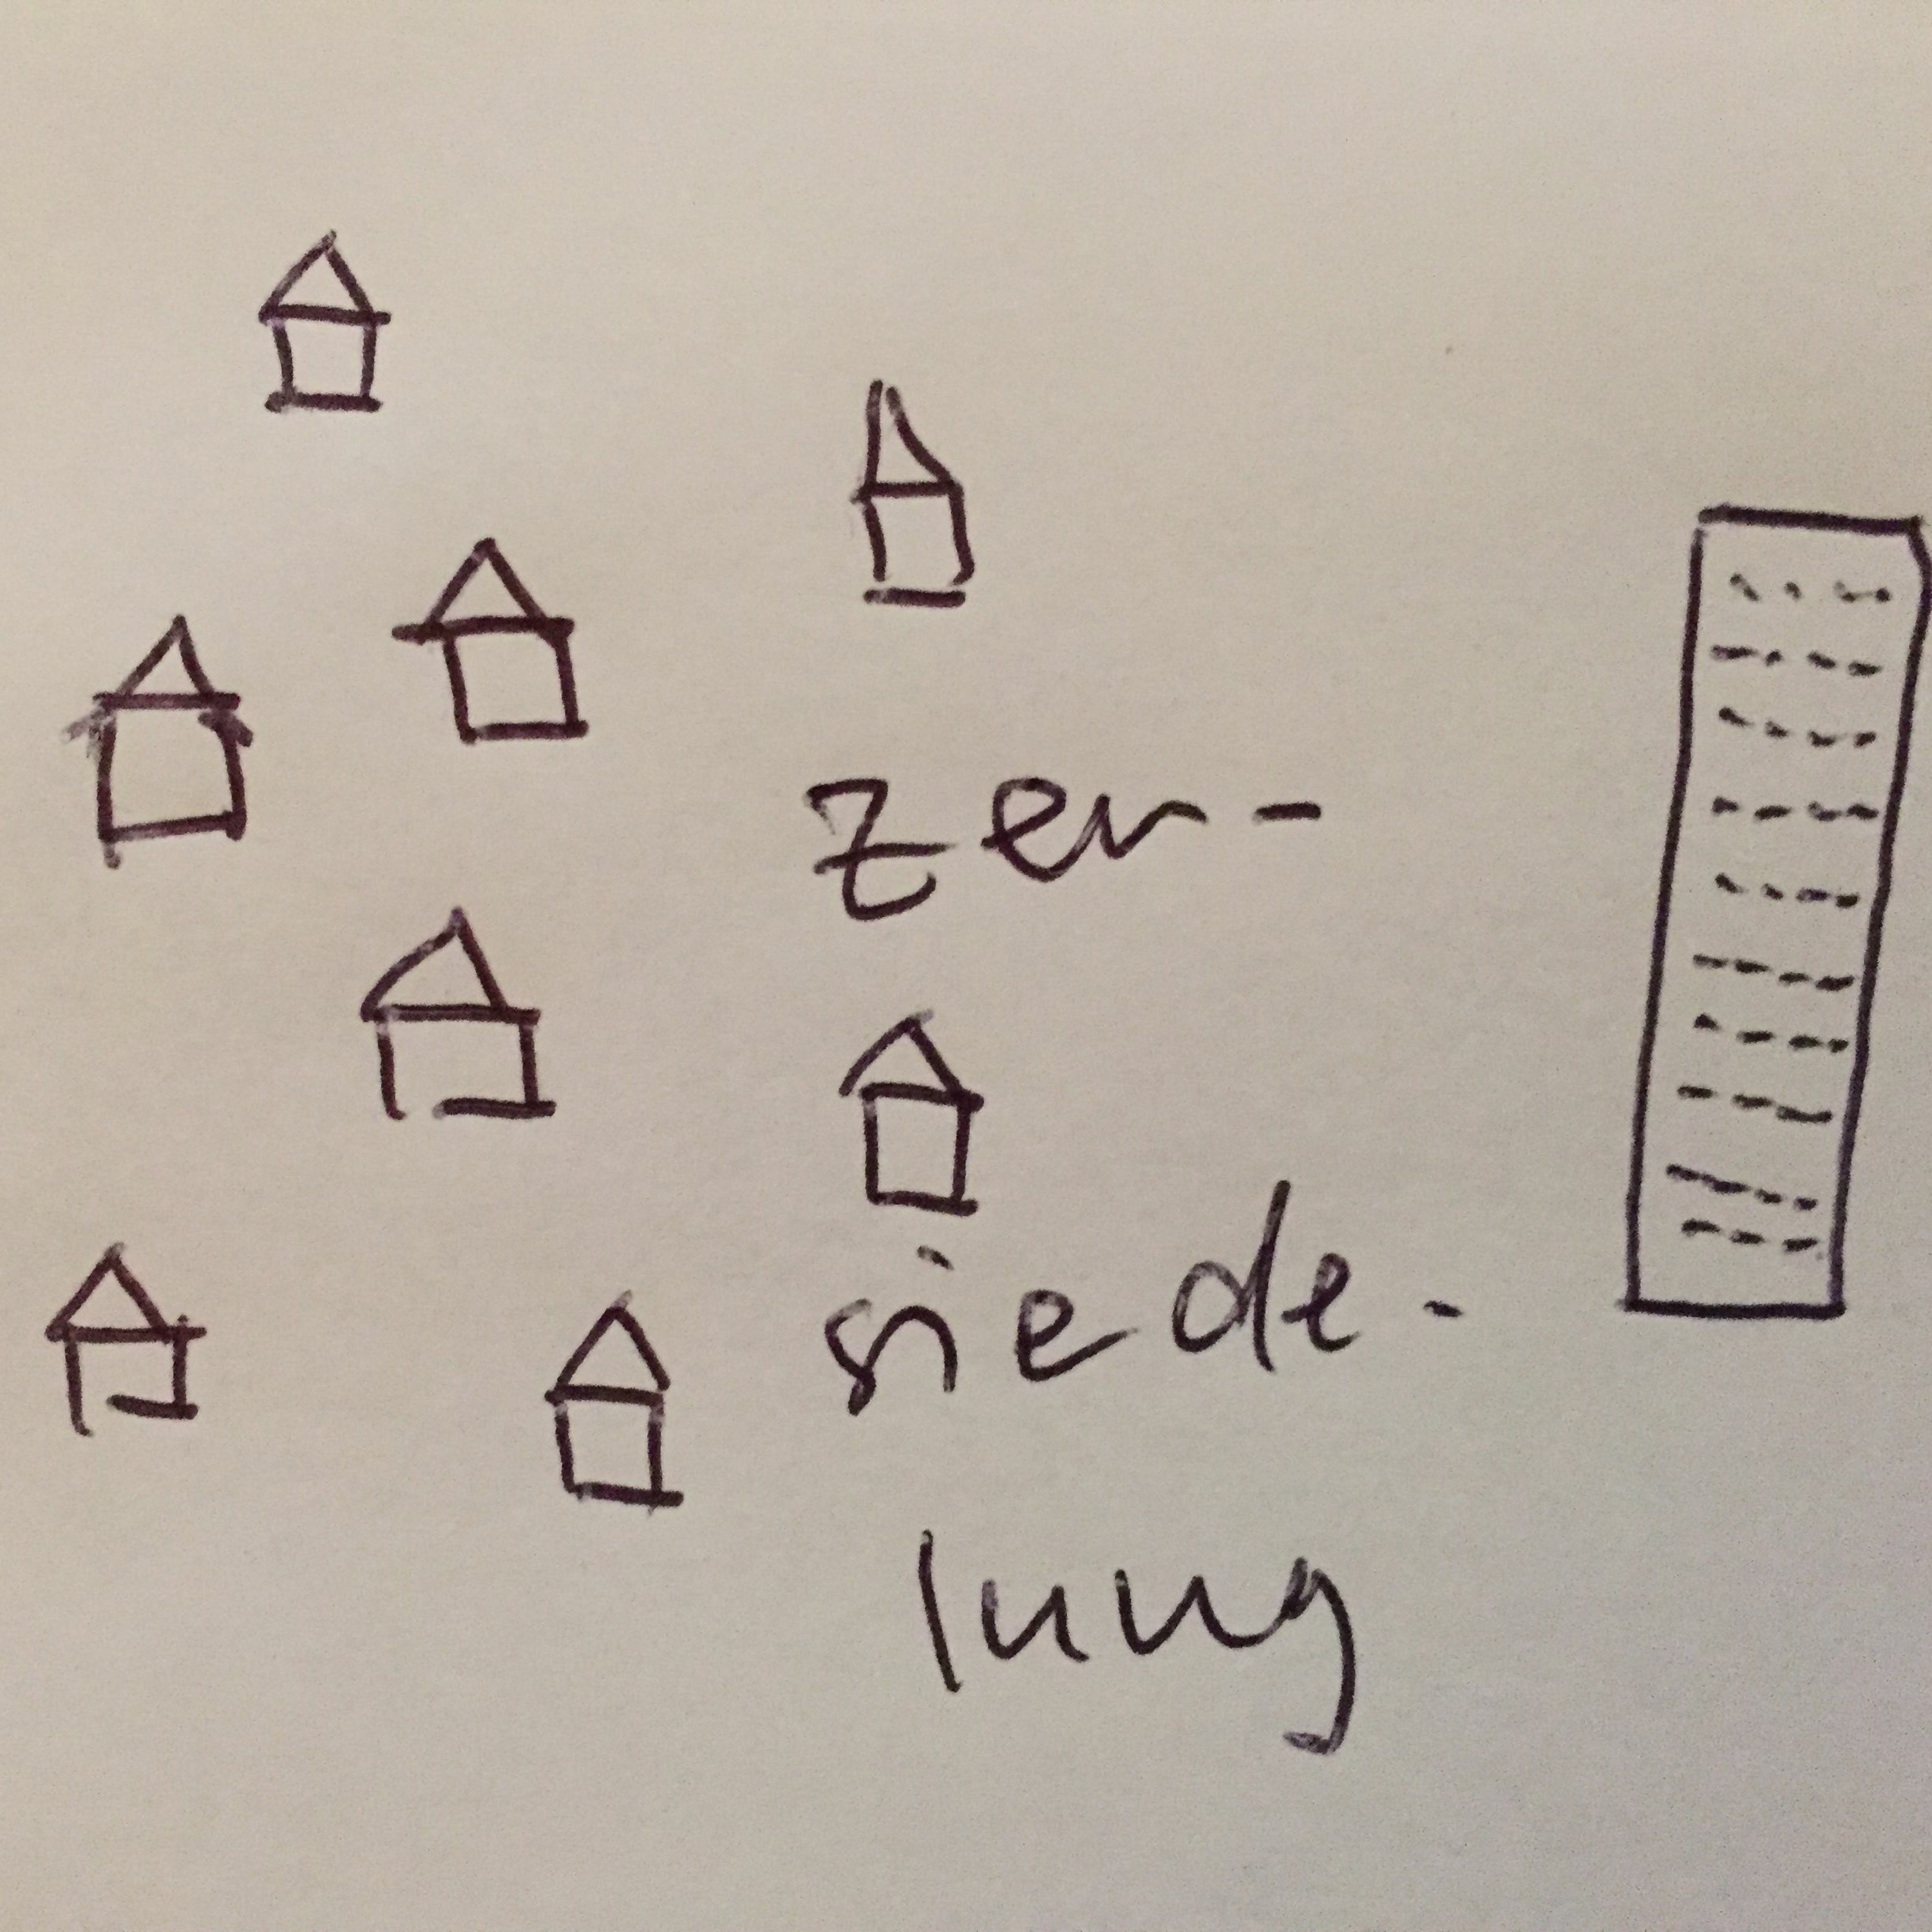 Zer-
siede-
lung